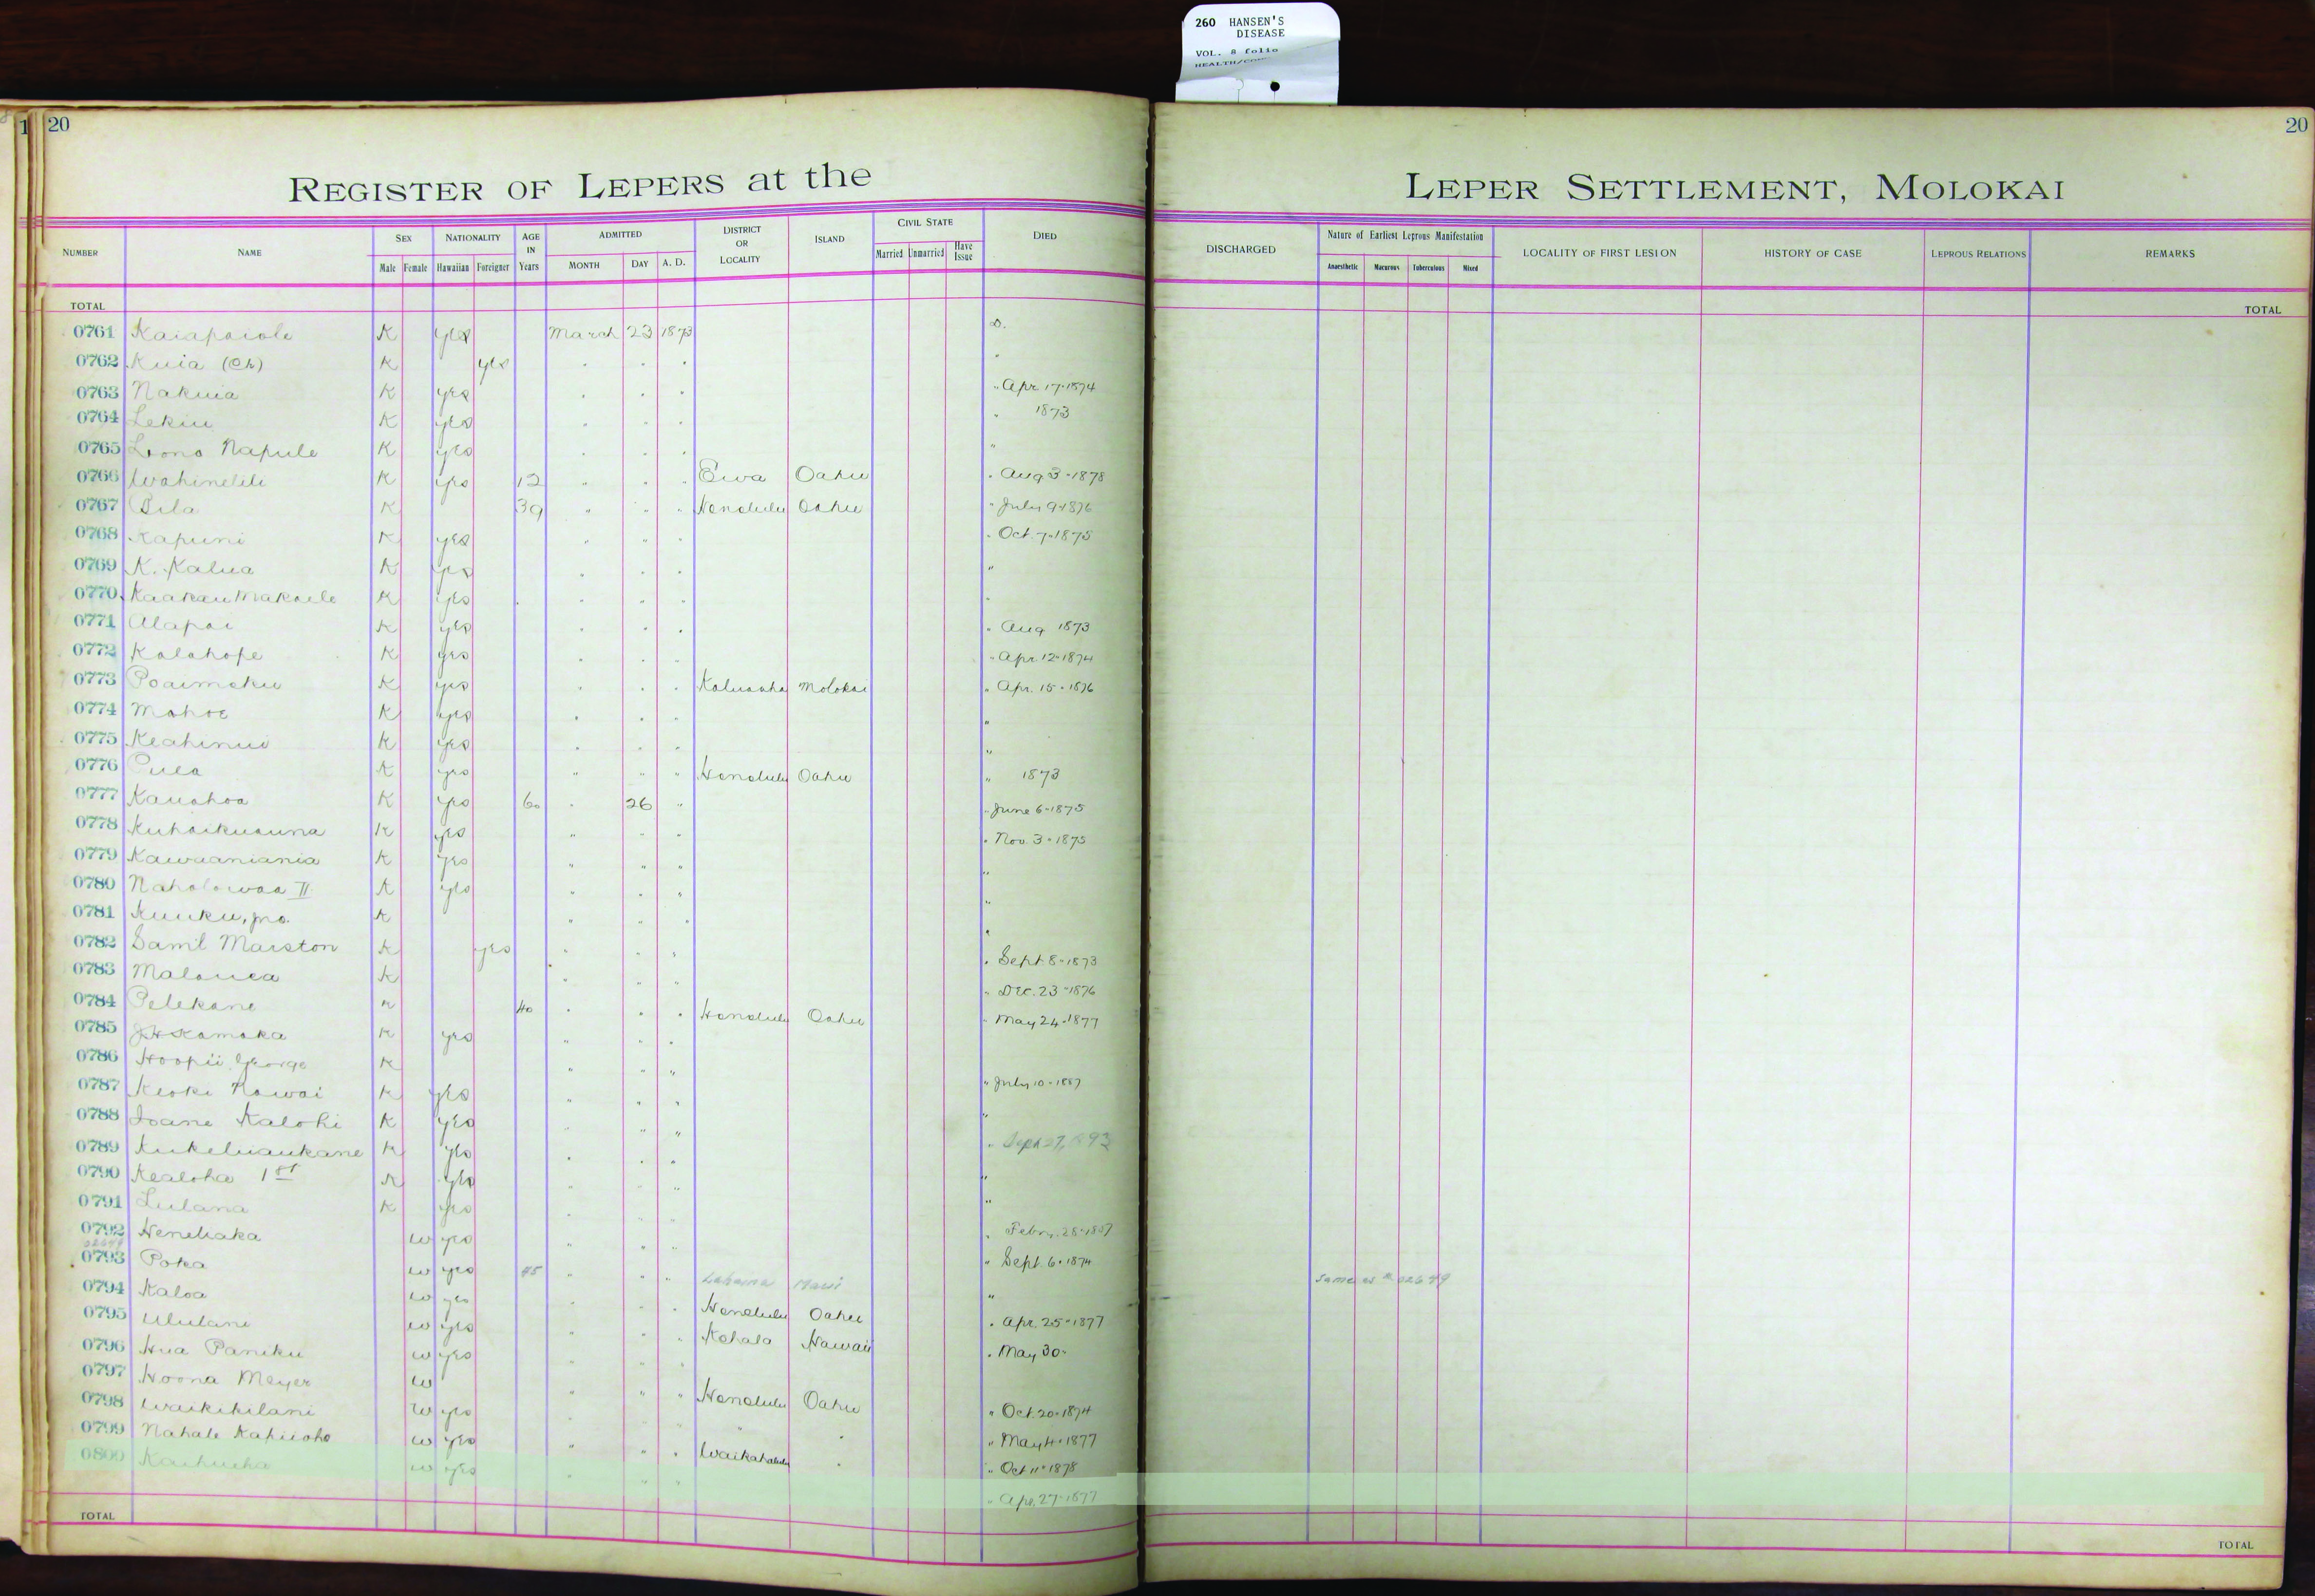 260 HANSEN'S
DISEASE
VOL. 8 folio
20
20
REGISTER OF LEPERS at the LEPER SETTLEMENT, MOLOKAI
NUMBER NAME SEX Male Female NATIONALITY Hawaiian Foreigner AGE IN Years ADMITTED MONTH DAY A. D. DISTRICT OR LOCALITY ISLAND CIVIL STATE Married Unmarried Have Issue DIED DISCHARGED Nature of Earliest Leprous Manifestation Anaesthetic Macurous Tuberculous Mixed LOCALITY OF FIRST LESION HISTORY OF CASE LEPROUS RELATIONS REMARKS
TOTAL TOTAL
0761 Kaiapaiole K yes March 23 1873 D.
0762 Kuia (Ch) K yes
0763 Nakuia K yes " Apr. 17-1874
0764 Lekiu K yes " 1873
0765 Lono Napule K yes "
0766 Wahinelili K yes 12 " " " Ewa Oahu " Aug 3-1878
0767 Pila K 39 " " " Honolulu Oahu " July 9-1876
0768 Kapuni K yes " Oct. 7-1875
0769 K. Kalua K yes "
0770 Kaakau Makaele K yes "
0771 Alapai K yes " Aug 1873
0772 Kalahope K yes " Apr. 12-1874
0773 Poaimoku K yes Kaluaaha Molokai " Apr. 15-1876
0774 Mahoe K yes "
0775 Keahinui K yes "
0776 Pula K yes " " " Honolulu Oahu " 1873
0777 Kauahoa K yes 60 " 26 " " June 6-1875
0778 Kuhaikuauna K yes " " " " Nov. 3-1875
0779 Kawaaniania K yes " " "
0780 Naholowaa II K yes " " " "
0781 Kuuku, jno. K " " " "
0782 Saml Marston K yes " " " " Sept 8-1873
0783 Malouea K " " " " Dec. 23-1876
0784 Pelekane K 40 " " " Honolulu Oahu " May 24-1877
0785 J.H. Kamaka K yes " " "
0786 Hoopii George K " " " " July 10-1887
0787 Keoki Nawai K yes " " " "
0788 Ioane Kalohi K yes " " " " Sept 27, 1893
0789 Kukeliaukane K yes " " " "
0790 Kealoha 1st K yes " " " "
0791 Lulana K yes " " "
0792 Heneliaka W yes " " " " Sept. 6-1874
0793 Poka W yes 45 " " " Lahaina Maui " Same as # 02649
0794 Kaloa W yes " " " Honolulu Oahu " Apr. 25-1877
0795 Ululani W yes " " " Kohala Hawaii " May 30-
0796 Hua Paniku W yes
0797 Hoona Meyer W " " " Honolulu Oahu " Oct. 20-1874
0798 Waikikilani W yes " " " May 4-1877
0799 Nahale Kapiioho W yes " " " Waikahalulu " " Oct 11-1878
0800 Kaihuuha W yes " " " " Apr. 27-1877
TOTAL TOTAL